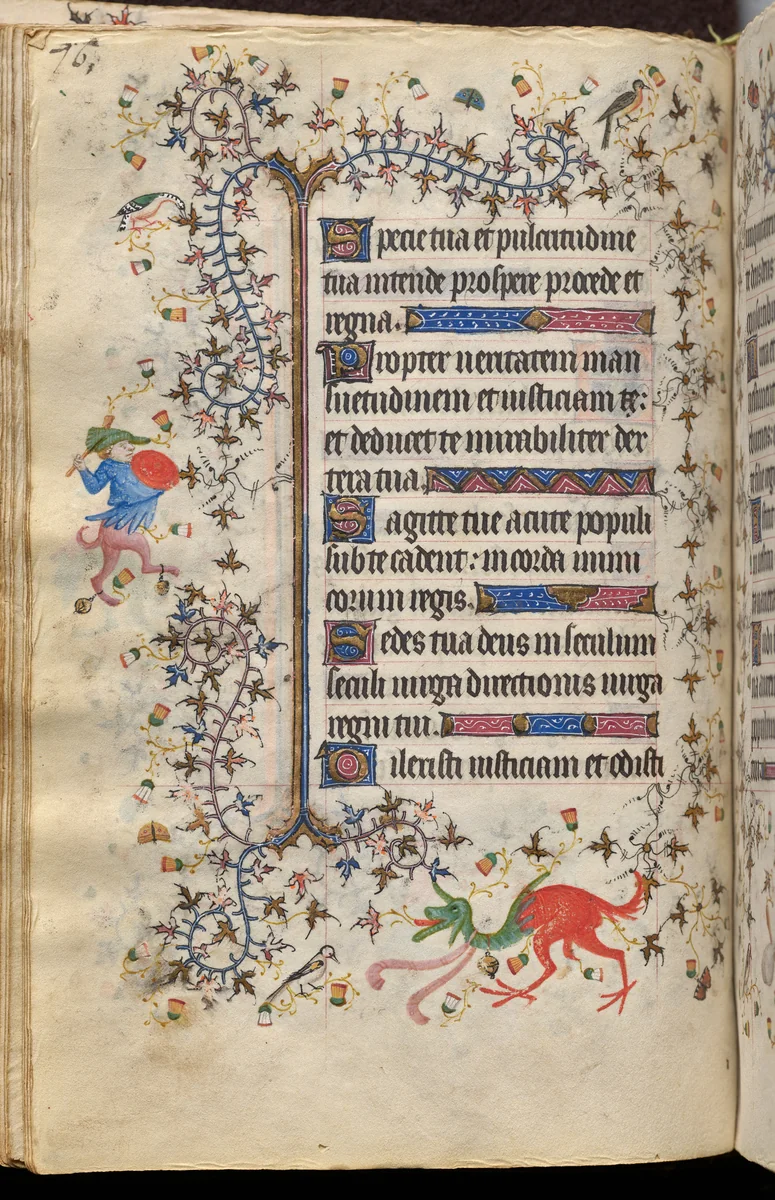 76
Specie tua et pulcritudine
tua intende prospere procede et
regna.
Propter ueritatem man
suetudinem et iusticiam tẜ:
et deducet te mirabiliter der
tera tua.
Sagitte tue acute populi
sub te cadent: in corda inimi
corum regis.
Sedes tua deus in seculum
seculi uirga directionis uirga
regni tui.
Dileristi iusticiam et odisti